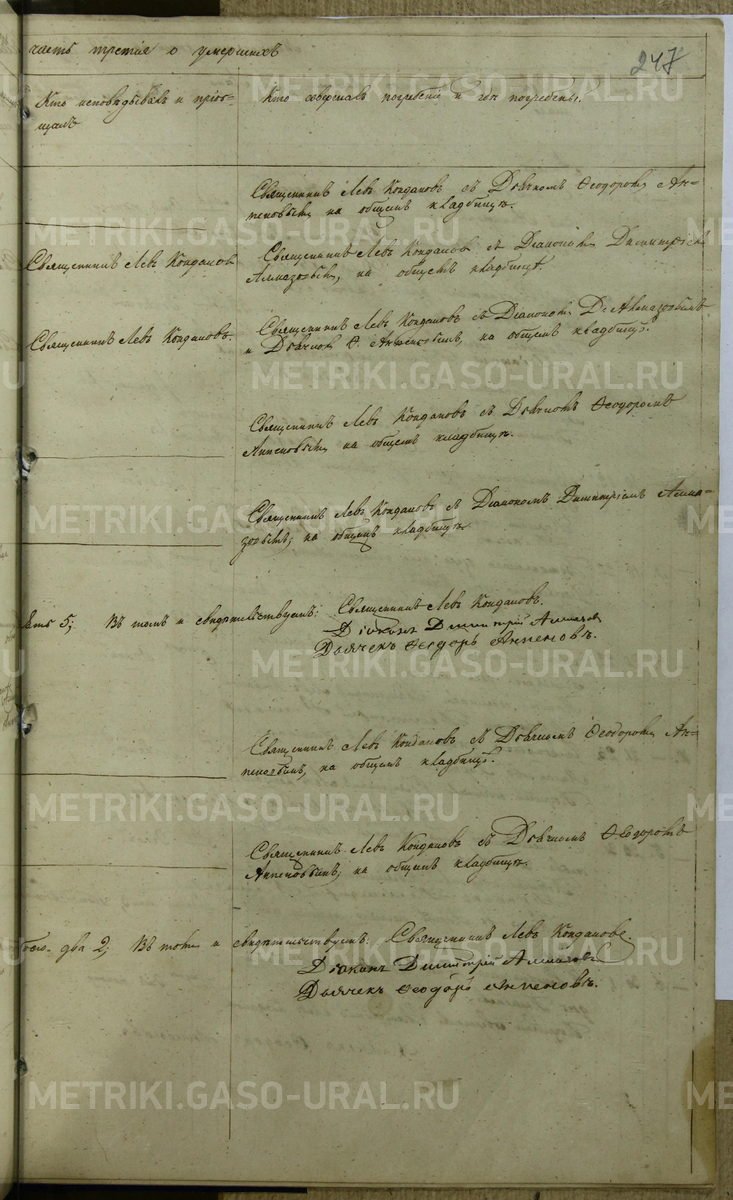 часть третiя о умершихъ
247
Кто исповѣдывалъ и прiоб-
щалъ
Кто совершалъ погребенiе и гдѣ погребены.
Священникъ Левъ Кондаковъ съ Дьячкомъ Ѳеодоромъ
на общемъ кладбищѣ.
Священникъ Левъ Кондаковъ
Священникъ Левъ Кондаковъ съ Дiакономъ Димитрiемъ
Алмазовымъ, на общемъ кладбищѣ.
Священникъ Левъ Кондаковъ.
Священникъ Левъ Кондаковъ съ Дiакономъ Д. Алмазовымъ
и Дьячкомъ Ѳ. на общемъ кладбищѣ.
Священникъ Левъ Кондаковъ съ Дьячкомъ Ѳеодоромъ
на общемъ кладбищѣ.
Священникъ Левъ Кондаковъ съ Дiакономъ Димитрiемъ Алма-
зовымъ, на общемъ кладбищѣ.
5; Въ томъ и свидѣтельствуемъ: Священникъ Левъ Кондаковъ.
Дiаконъ Димитрiй Алмазовъ
Дьячекъ Ѳеодоръ Анпеновъ.
Священникъ Левъ Кондаковъ съ Дьячкомъ Ѳеодоромъ Ан-
пеновымъ, на общемъ кладбищѣ.
Священникъ Левъ Кондаковъ съ Дьячкомъ Ѳеодоромъ
Анпеновымъ, на общемъ кладбищѣ.
два 2; Въ томъ и свидѣтельствуемъ: Священникъ Левъ Кондаковъ.
Дiаконъ Димитрiй Алмазовъ
Дьячекъ Ѳеодоръ Анпеновъ.
METRIKI.GASO-URAL.RU